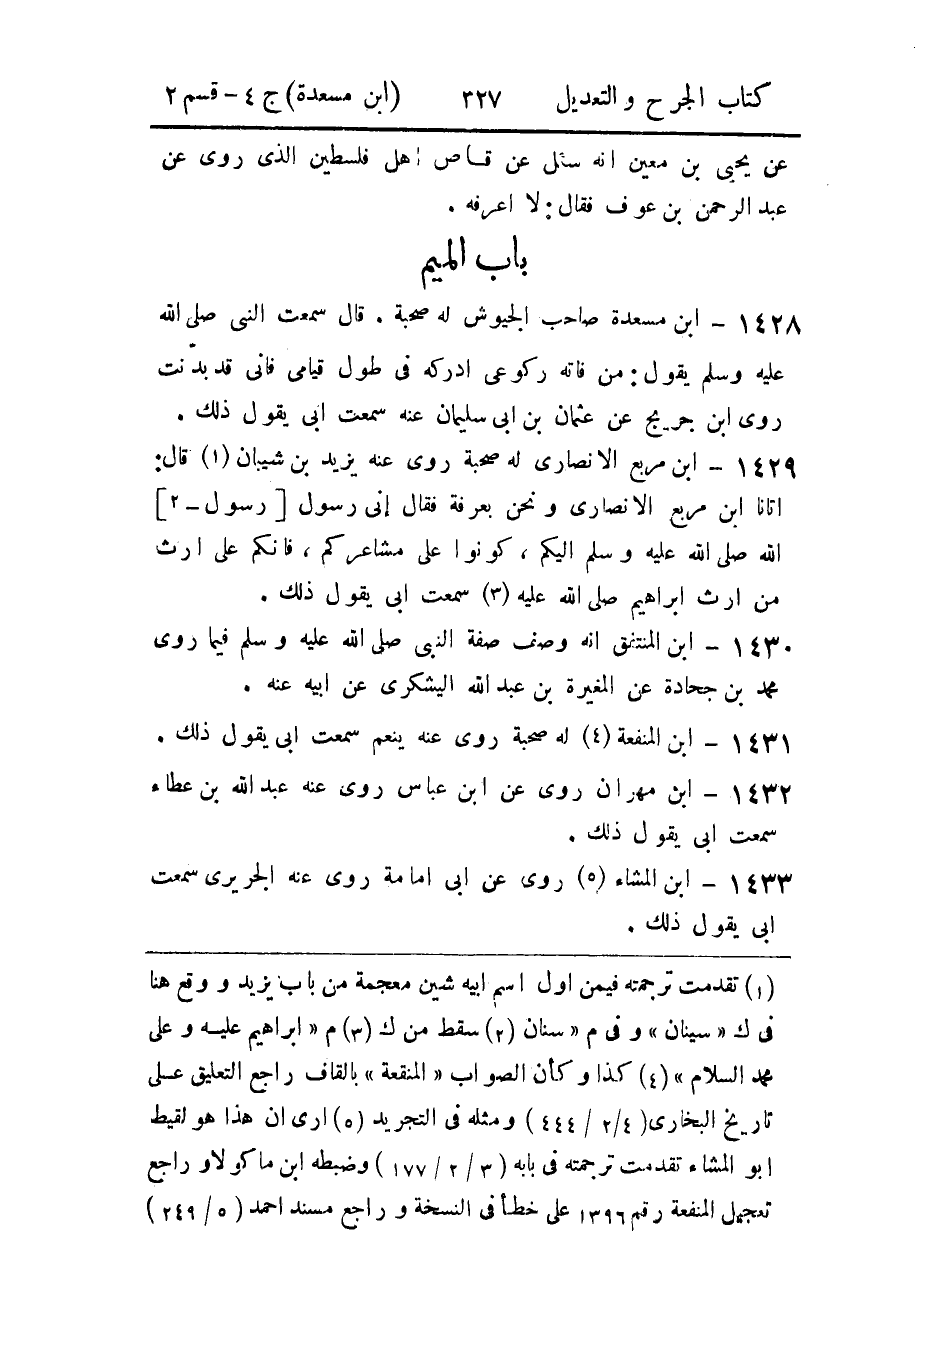 كتاب الجرح والتعديل ٣٢٧ (ابن مسعدة) ج ٤ - قسم ٢
عن يحيى بن معين انه سئل عن قاص اهل فلسطين الذى روى عن
عبد الرحمن بن عوف فقال: لا اعرفه .
باب الميم
١٤٢٨ - ابن مسعدة صاحب الجيوش له صحبة . قال سمعت النبى صلى الله
عليه وسلم يقول: من فاته ركوعى ادركه فى طول قيامى فانى قد بدّنت
روى ابن جريج عن عثمان بن ابى سليمان عنه سمعت ابى يقول ذلك .
١٤٢٩ - ابن مربع الانصارى له صحبة روى عنه يزيد بن شيبان (١) قال:
اتانا ابن مربع الانصارى ونحن بعرفة فقال إنى رسول [ رسول - ٢ ]
الله صلى الله عليه وسلم اليكم ، كونوا على مشاعركم ، فانكم على ارث
من ارث ابراهيم صلى الله عليه (٣) سمعت ابى يقول ذلك .
١٤٣٠ - ابن المنتفق انه وصف صفة النبى صلى الله عليه وسلم فيما روى
محمد بن جحادة عن المغيرة بن عبد الله اليشكرى عن ابيه عنه .
١٤٣١ - ابن المنفعة (٤) له صحبة روى عنه ينعم سمعت ابى يقول ذلك .
١٤٣٢ - ابن مهران روى عن ابن عباس روى عنه عبد الله بن عطاء
سمعت ابى يقول ذلك .
١٤٣٣ - ابن المشاء (٥) روى عن ابى امامة روى عنه الجريرى سمعت
ابى يقول ذلك .
(١) تقدمت ترجمته فيمن اول اسم ابيه شين معجمة من باب يزيد ووقع هنا
فى ك « سينان » وفى م « سنان (٢) سقط من ك (٣) م « ابراهيم عليه وعلى
محمد السلام » (٤) كذا وكأن الصواب « المنقعة » بالقاف راجع التعليق على
تاريخ البخارى (٤/٢ / ٤٤٤ ) ومثله فى التجريد (٥) ارى ان هذا هو لقيط
ابو المشاء تقدمت ترجمته فى بابه ( ٣ / ٢ / ١٧٧ ) وضبطه ابن ماكولا وراجع
تعجيل المنفعة رقم ١٣٩٦ على خطأ فى النسخة وراجع مسند احمد ( ٥ / ٢٤٩ )